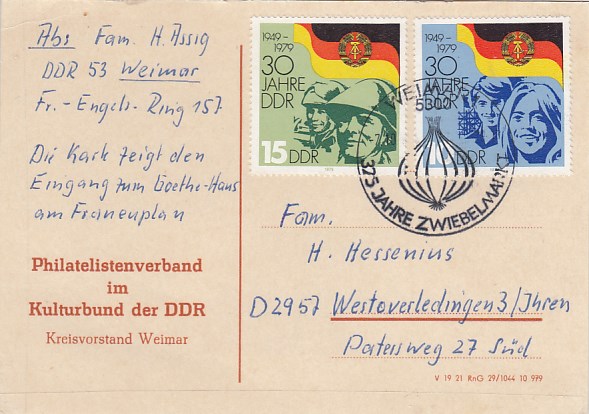 Abs Fam. H. Assig
DDR 53 Weimar
Fr.-Engels-Ring 157
Die Karte zeigt den
Eingang zum Goethe-Haus
am Frauenplan
Philatelistenverband
im
Kulturbund der DDR
Kreisvorstand Weimar
1949-
1979
30
JAHRE
DDR
15 DDR
1949-
1979
30
JAHRE
DDR
DDR
WEIMAR
5300
325 JAHRE ZWIEBELMARKT
Fam.
H. Hessenius
D2957 Westoverledingen 3/Ihren
Patersweg 27 Süd
V 19 21 RnG 29/1044 10 979